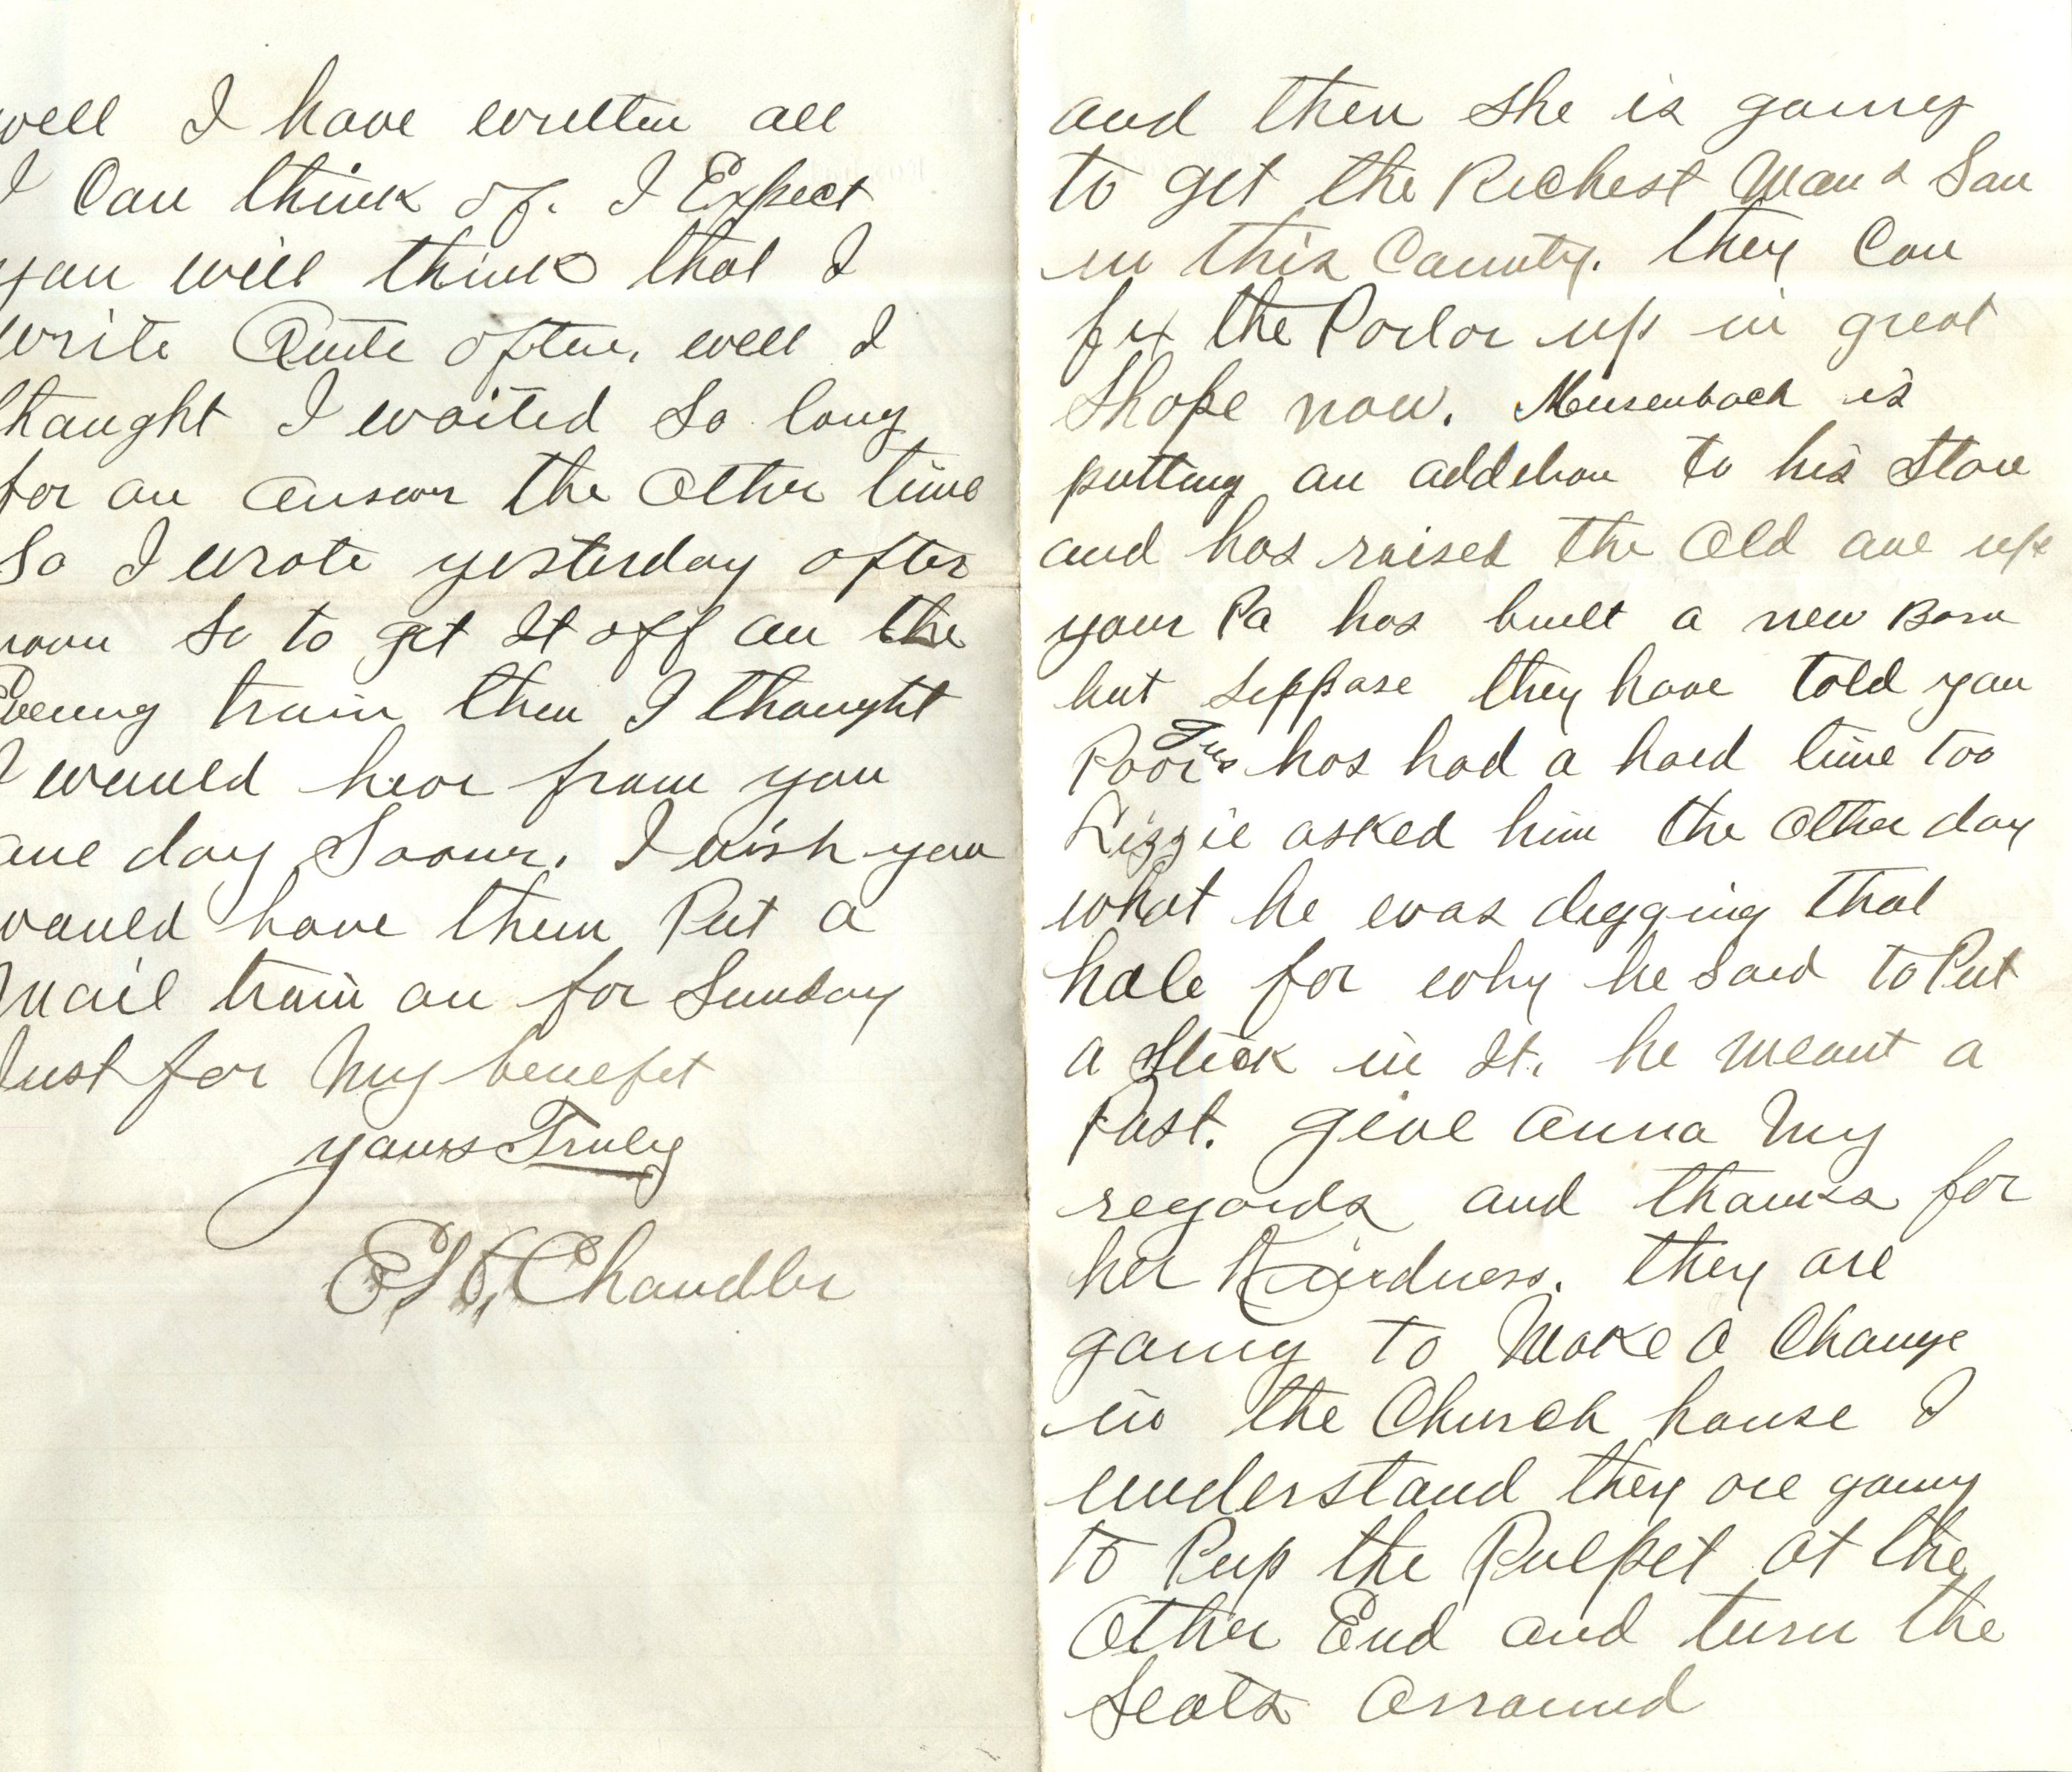 well I have written all
I Can think of. I Expect
you will think that I
write Quite often, well I
thought I waited So long
for an answer the other time
So I wrote yesterday after
noon So to get It off on the
Eveing train then I thought
I would hear from you
one day Sooner. I wish you
would have them Put a
Mail train on for Sunday
Just for My benefit
yours Truly
E S Chandler
and then She is going
to get the Richest Mans Son
in this County. they Can
fix the Parlor up in great
Shape now. Meusenbach is
putting an addition to his Store
and has raised the Old one up
your Pa has built a new Barn
but Suppose they have told you
Poor Gus has had a hard time too
Lizzie asked him the other day
what he was digging that
hole for why he Said to Put
a Stick in It. he meant a
Post. give Anna My
regards and thanks for
her Kindness. they are
going to Make a Change
in the Church house I
understand they are going
to Pup the Pulpet at the
Other End and turn the
Seats Arround